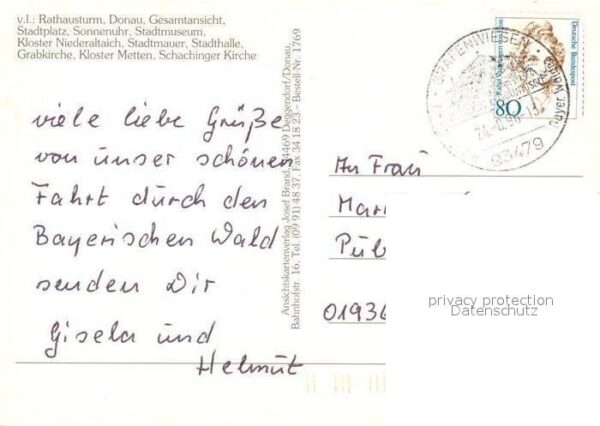 v.l.: Rathausturm, Donau, Gesamtansicht,
Stadtplatz, Sonnenuhr, Stadtmuseum,
Kloster Niederaltaich, Stadtmauer, Stadthalle,
Grabkirche, Kloster Metten, Schachinger Kirche
viele liebe Grüße
von unser schönen
Fahrt durch den
Bayerischen Wald
senden Dir
Gisela und
Helmut
Ansichtskartenverlag Josef Brand, 94469 Deggendorf/Donau,
Bahnhofstr. 16, Tel. (09 91) 48 37, Fax 34 18 23 – Bestell-Nr. 1769
GRAFENWIESEN
93479
Deutsche Bundespost
80
An Frau
Mar
Pül
01936
privacy protection
Datenschutz